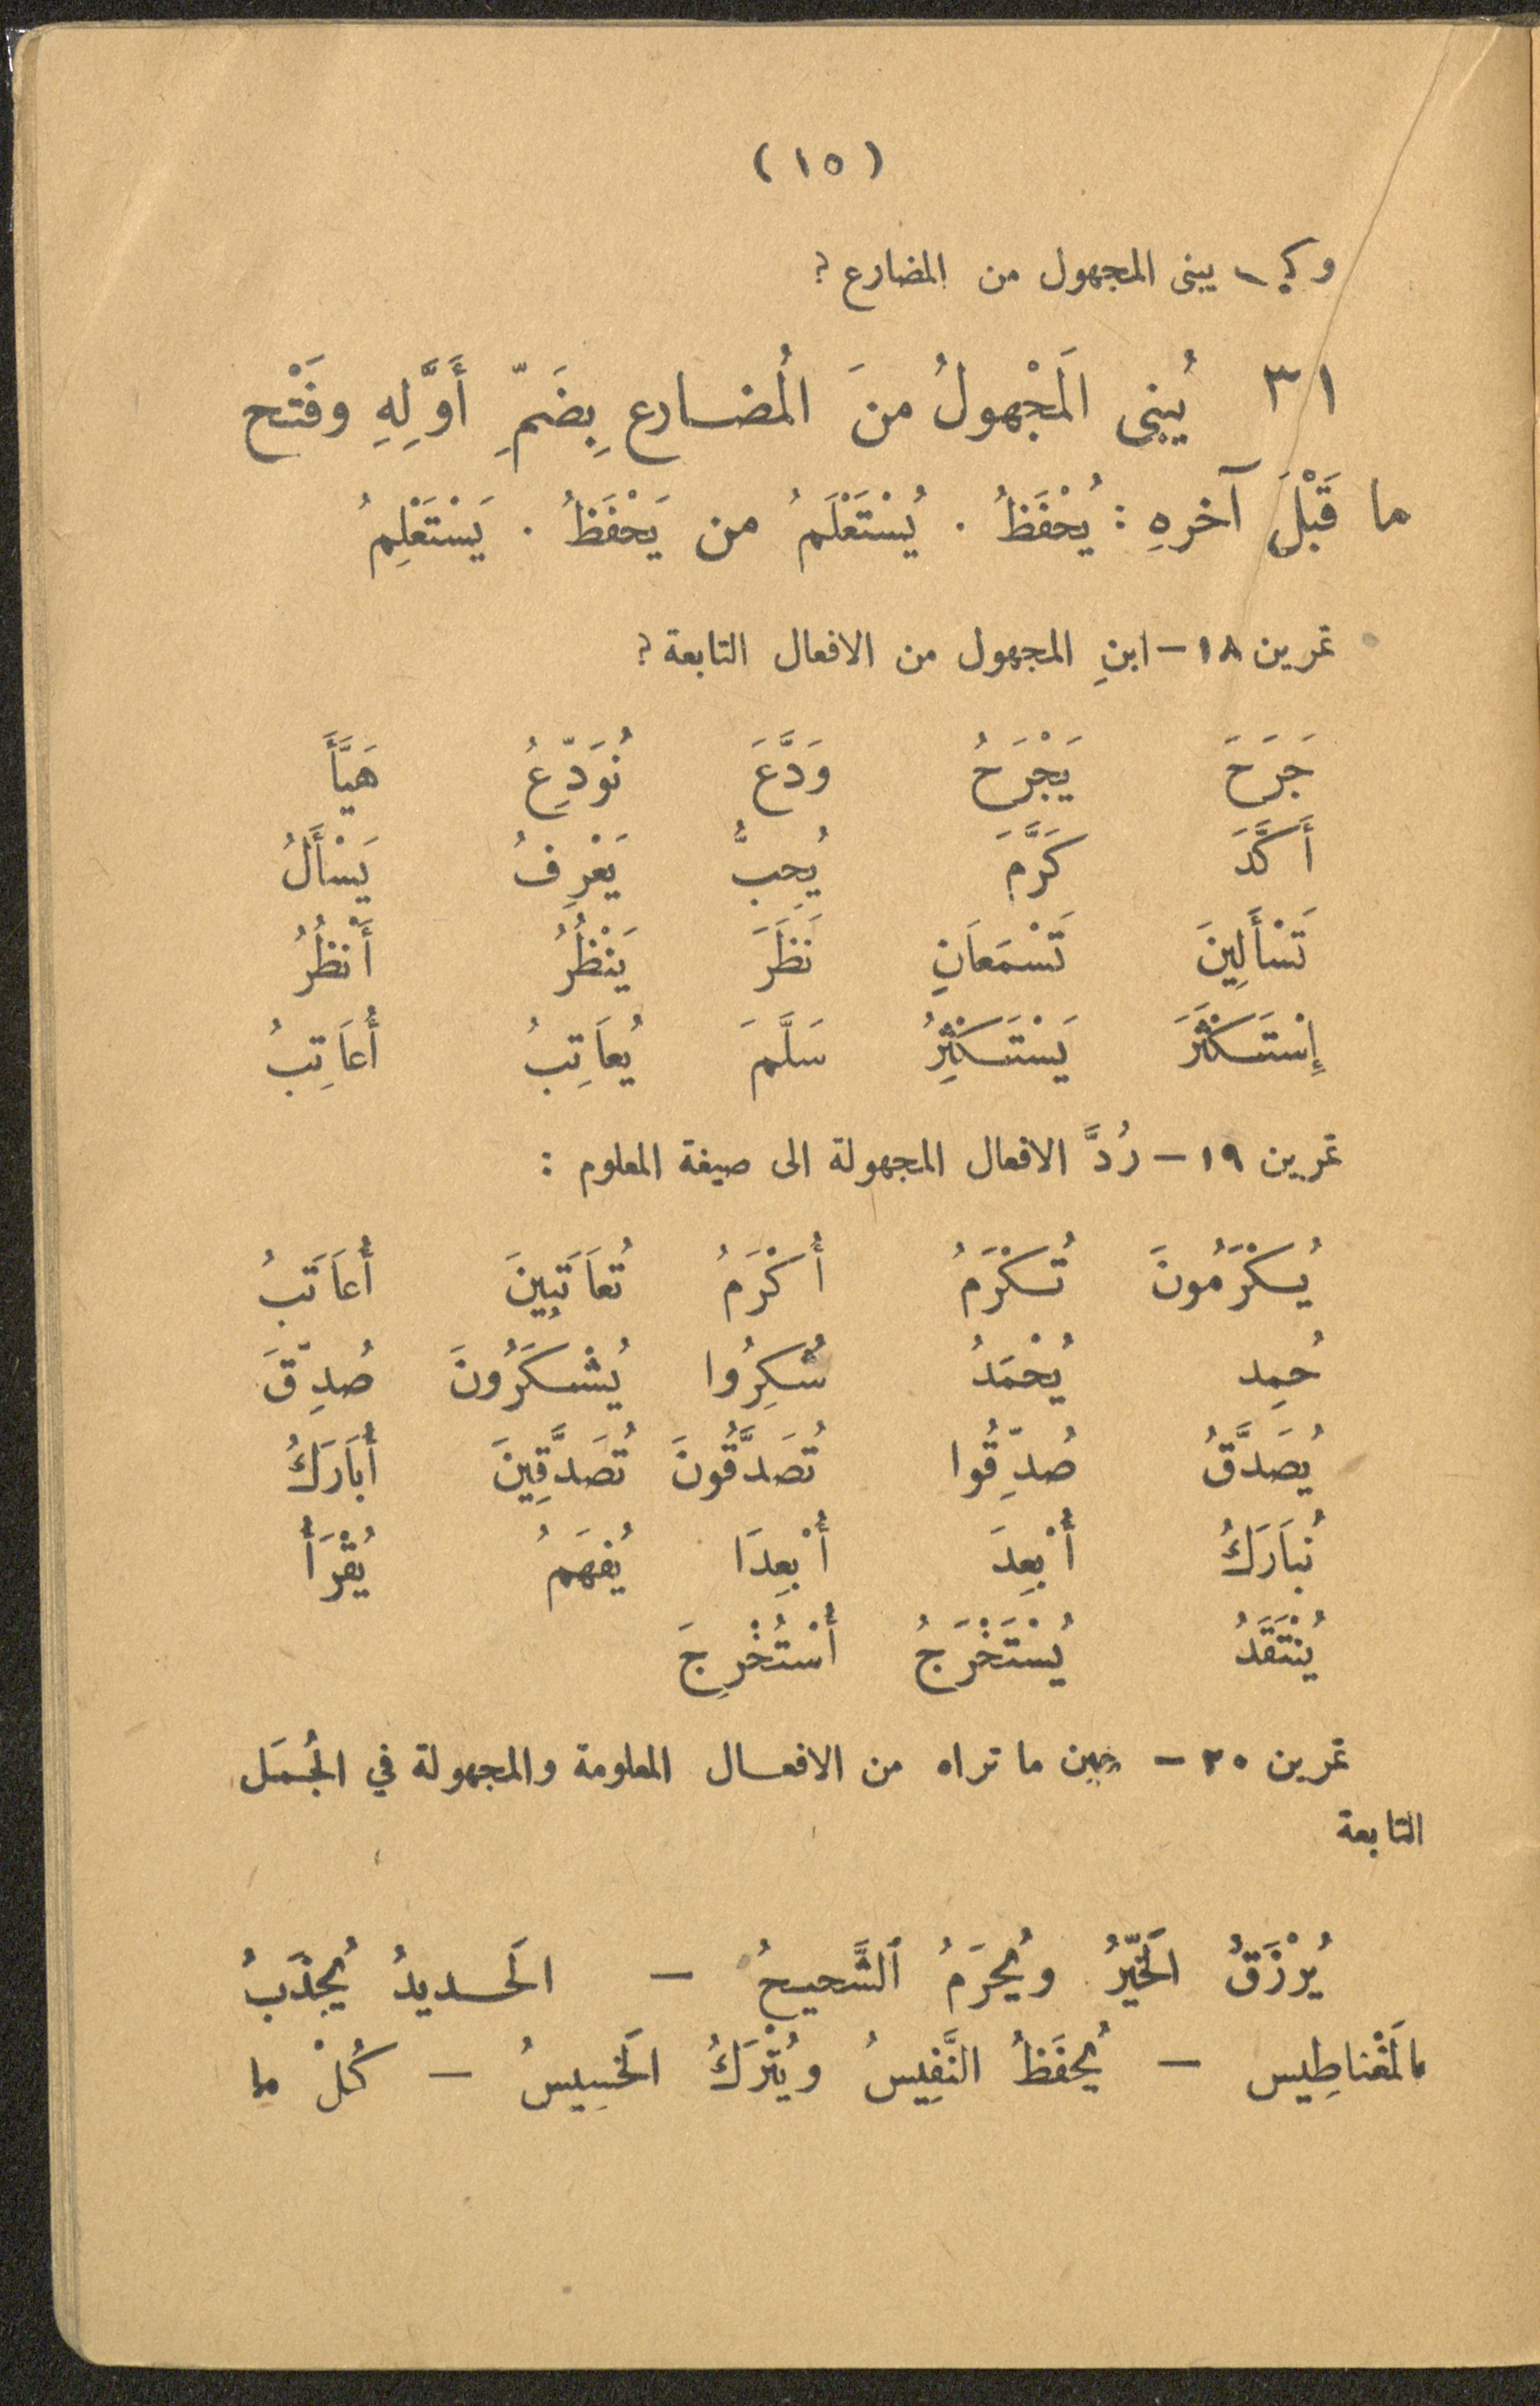 (١٥)
وكيف يبنى المجهول من المضارع؟
٣١ يُبنى اَلمَجْهولُ منَ اُلمضارع بِضَمِّ أَوَّلِهِ وفَتْح
ما قَبْلَ آخرهِ : يُحْفَظُ . يُسْتَعْلَمُ من يَحْفَظُ . يَسْتَعْلِمُ
تمرين ١٨ – ابنِ المجهول من الافعال التابعة؟
جَرَحَ يَجْرَحُ وَدَّعَ نُوَدِّعُ هَيَّأَ
أَكَّدَ كَرَّمَ يُحِبُّ يَعْرِفُ يَسْأَلُ
تَسْأَلِينَ تَسْمَعَانِ نَظَرَ يَنْظُرُ أَنْظُرُ
إِسْتَكْثَرَ يَسْتَكْثِرُ سَلَّمَ يُعَاتِبُ أُعَاتِبُ
تمرين ١٩ – رُدَّ الافعال المجهولة الى صيغة المعلوم :
يُكْرَمُونَ تُكْرَمُ أُكْرَمُ تُعَاتَبِينَ أُعَاتَبُ
حُمِد يُحْمَدُ شُكِرُوا يُشْكَرُونَ صُدِّقَ
يُصَدَّقُ صُدِّقُوا تُصَدَّقُونَ تُصَدَّقِينَ أُبَارَكُ
نُبَارَكُ أُبْعِدَ أُبْعِدَا يُفهَمُ يُقْرَأُ
يُنْتَقَدُ يُسْتَخْرَجُ أُسْتُخْرِجَ
تمرين ٢٠ – ما تراه من الافعال المعلومة والمجهولة في الجُمَل
التابعة
يُرْزَقُ اَلخَيِّرُ ويُحرَمُ ٱلشَّحيحُ – اَلحديدُ يُجذَبُ
بالمَغْناطِيس – يُحفَظُ النَّفِيسُ ويُتْرَكُ اَلخسِيسُ – كُلْ ما